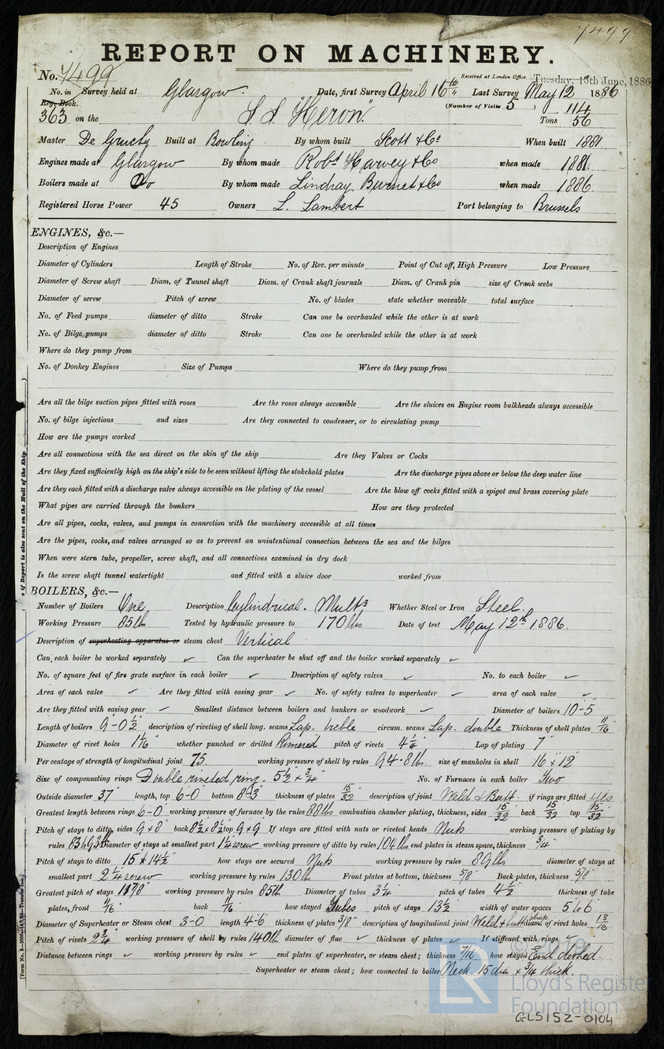 7499
REPORT ON MACHINERY.
No. 7499 Received at London Office Tuesday, 15th June, 1886
No. in Survey held at Glasgow. Date, first Survey April 16th Last Survey May 12 1886
Reg. Book. (Number of Visits 5) 114
363 on the S.S. "Heron" Tons 56
Master De Gruchy Built at Bowling By whom built Scott & Co When built 1881
Engines made at Glasgow By whom made Robt Harvey & Co when made 1881
Boilers made at Do By whom made Lindsay Burnet & Co when made 1886
Registered Horse Power 45 Owners L. Lambert Port belonging to Brussels
ENGINES, &c.—
Description of Engines
Diameter of Cylinders Length of Stroke No. of Rev. per minute Point of Cut off, High Pressure Low Pressure
Diameter of Screw shaft Diam. of Tunnel shaft Diam. of Crank shaft journals Diam. of Crank pin size of Crank webs
Diameter of screw Pitch of screw No. of blades state whether moveable total surface
No. of Feed pumps diameter of ditto Stroke Can one be overhauled while the other is at work
No. of Bilge pumps diameter of ditto Stroke Can one be overhauled while the other is at work
Where do they pump from
No. of Donkey Engines Size of Pumps Where do they pump from
Are all the bilge suction pipes fitted with roses Are the roses always accessible Are the sluices on Engine room bulkheads always accessible
No. of bilge injections and sizes Are they connected to condenser, or to circulating pump
How are the pumps worked
Are all connections with the sea direct on the skin of the ship Are they Valves or Cocks
Are they fixed sufficiently high on the ship's side to be seen without lifting the stokehold plates Are the discharge pipes above or below the deep water line
Are they each fitted with a discharge valve always accessible on the plating of the vessel Are the blow off cocks fitted with a spigot and brass covering plate
What pipes are carried through the bunkers How are they protected
Are all pipes, cocks, valves, and pumps in connection with the machinery accessible at all times
Are the pipes, cocks, and valves arranged so as to prevent an unintentional connection between the sea and the bilges
When were stern tube, propeller, screw shaft, and all connections examined in dry dock
Is the screw shaft tunnel watertight and fitted with a sluice door worked from
BOILERS, &c.—
Number of Boilers One Description Cylindrical. Mult. Whether Steel or Iron Steel
Working Pressure 85 lbs Tested by hydraulic pressure to 170 lbs Date of test May 12th 1886.
Description of superheating apparatus or steam chest Vertical
Can each boiler be worked separately ✓ Can the superheater be shut off and the boiler worked separately ✓
No. of square feet of fire grate surface in each boiler ✓ Description of safety valves ✓ No. to each boiler ✓
Area of each valve ✓ Are they fitted with easing gear ✓ No. of safety valves to superheater ✓ area of each valve ✓
Are they fitted with easing gear ✓ Smallest distance between boilers and bunkers or woodwork ✓ Diameter of boilers 10-5"
Length of boilers 9-0½" description of riveting of shell long. seams Lap. treble circum. seams Lap. double Thickness of shell plates 11/16"
Diameter of rivet holes 1 1/16" whether punched or drilled Rimered pitch of rivets 4¼" Lap of plating 7"
Per centage of strength of longitudinal joint 75 working pressure of shell by rules 94.8 lbs size of manholes in shell 16 x 12"
Size of compensating rings Double riveted ring. 5½" x ¾" No. of Furnaces in each boiler Two
Outside diameter 37" length, top 6-0" bottom 8-3" thickness of plates 15/32" description of joint Weld & Butt if rings are fitted Yes
Greatest length between rings 6-0" working pressure of furnace by the rules 88 lbs combustion chamber plating, thickness, sides 15/32 back 15/32 top 15/32
Pitch of stays to ditto, sides 9 x 8" back 8½ x 8½ top 9 x 9 If stays are fitted with nuts or riveted heads Nuts working pressure of plating by
rules Diameter of stays at smallest part screw working pressure of ditto by rules 104 lbs end plates in steam space, thickness ¾"
Pitch of stays to ditto 15 x 14½" how stays are secured Nuts working pressure by rules 89 lbs diameter of stays at
smallest part 2¼ screw working pressure by rules 130 lb Front plates at bottom, thickness 5/8" Back plates, thickness 5/8"
Greatest pitch of stays working pressure by rules 85 lb Diameter of tubes 3¼" pitch of tubes 4½" thickness of tube
plates, front 11/16" back 11/16" how stayed Tubes pitch of stays 13½ width of water spaces 5 to 6"
Diameter of Superheater or Steam chest 3-0 length 4-6 thickness of plates 3/8" description of longitudinal joint Weld & butt strap diam. of rivet holes 13/16
Pitch of rivets 2¾" working pressure of shell by rules 140 lb diameter of flue ✓ thickness of plates ✓ If stiffened with rings ✓
Distance between rings ✓ working pressure by rules ✓ end plates of superheater, or steam chest; thickness 7/16 how stayed End dished.
Superheater or steam chest; how connected to boiler Neck. 15 dia x ¾ thick.
© 2019
LR
Lloyd's Register
Foundation
GLS152-0104